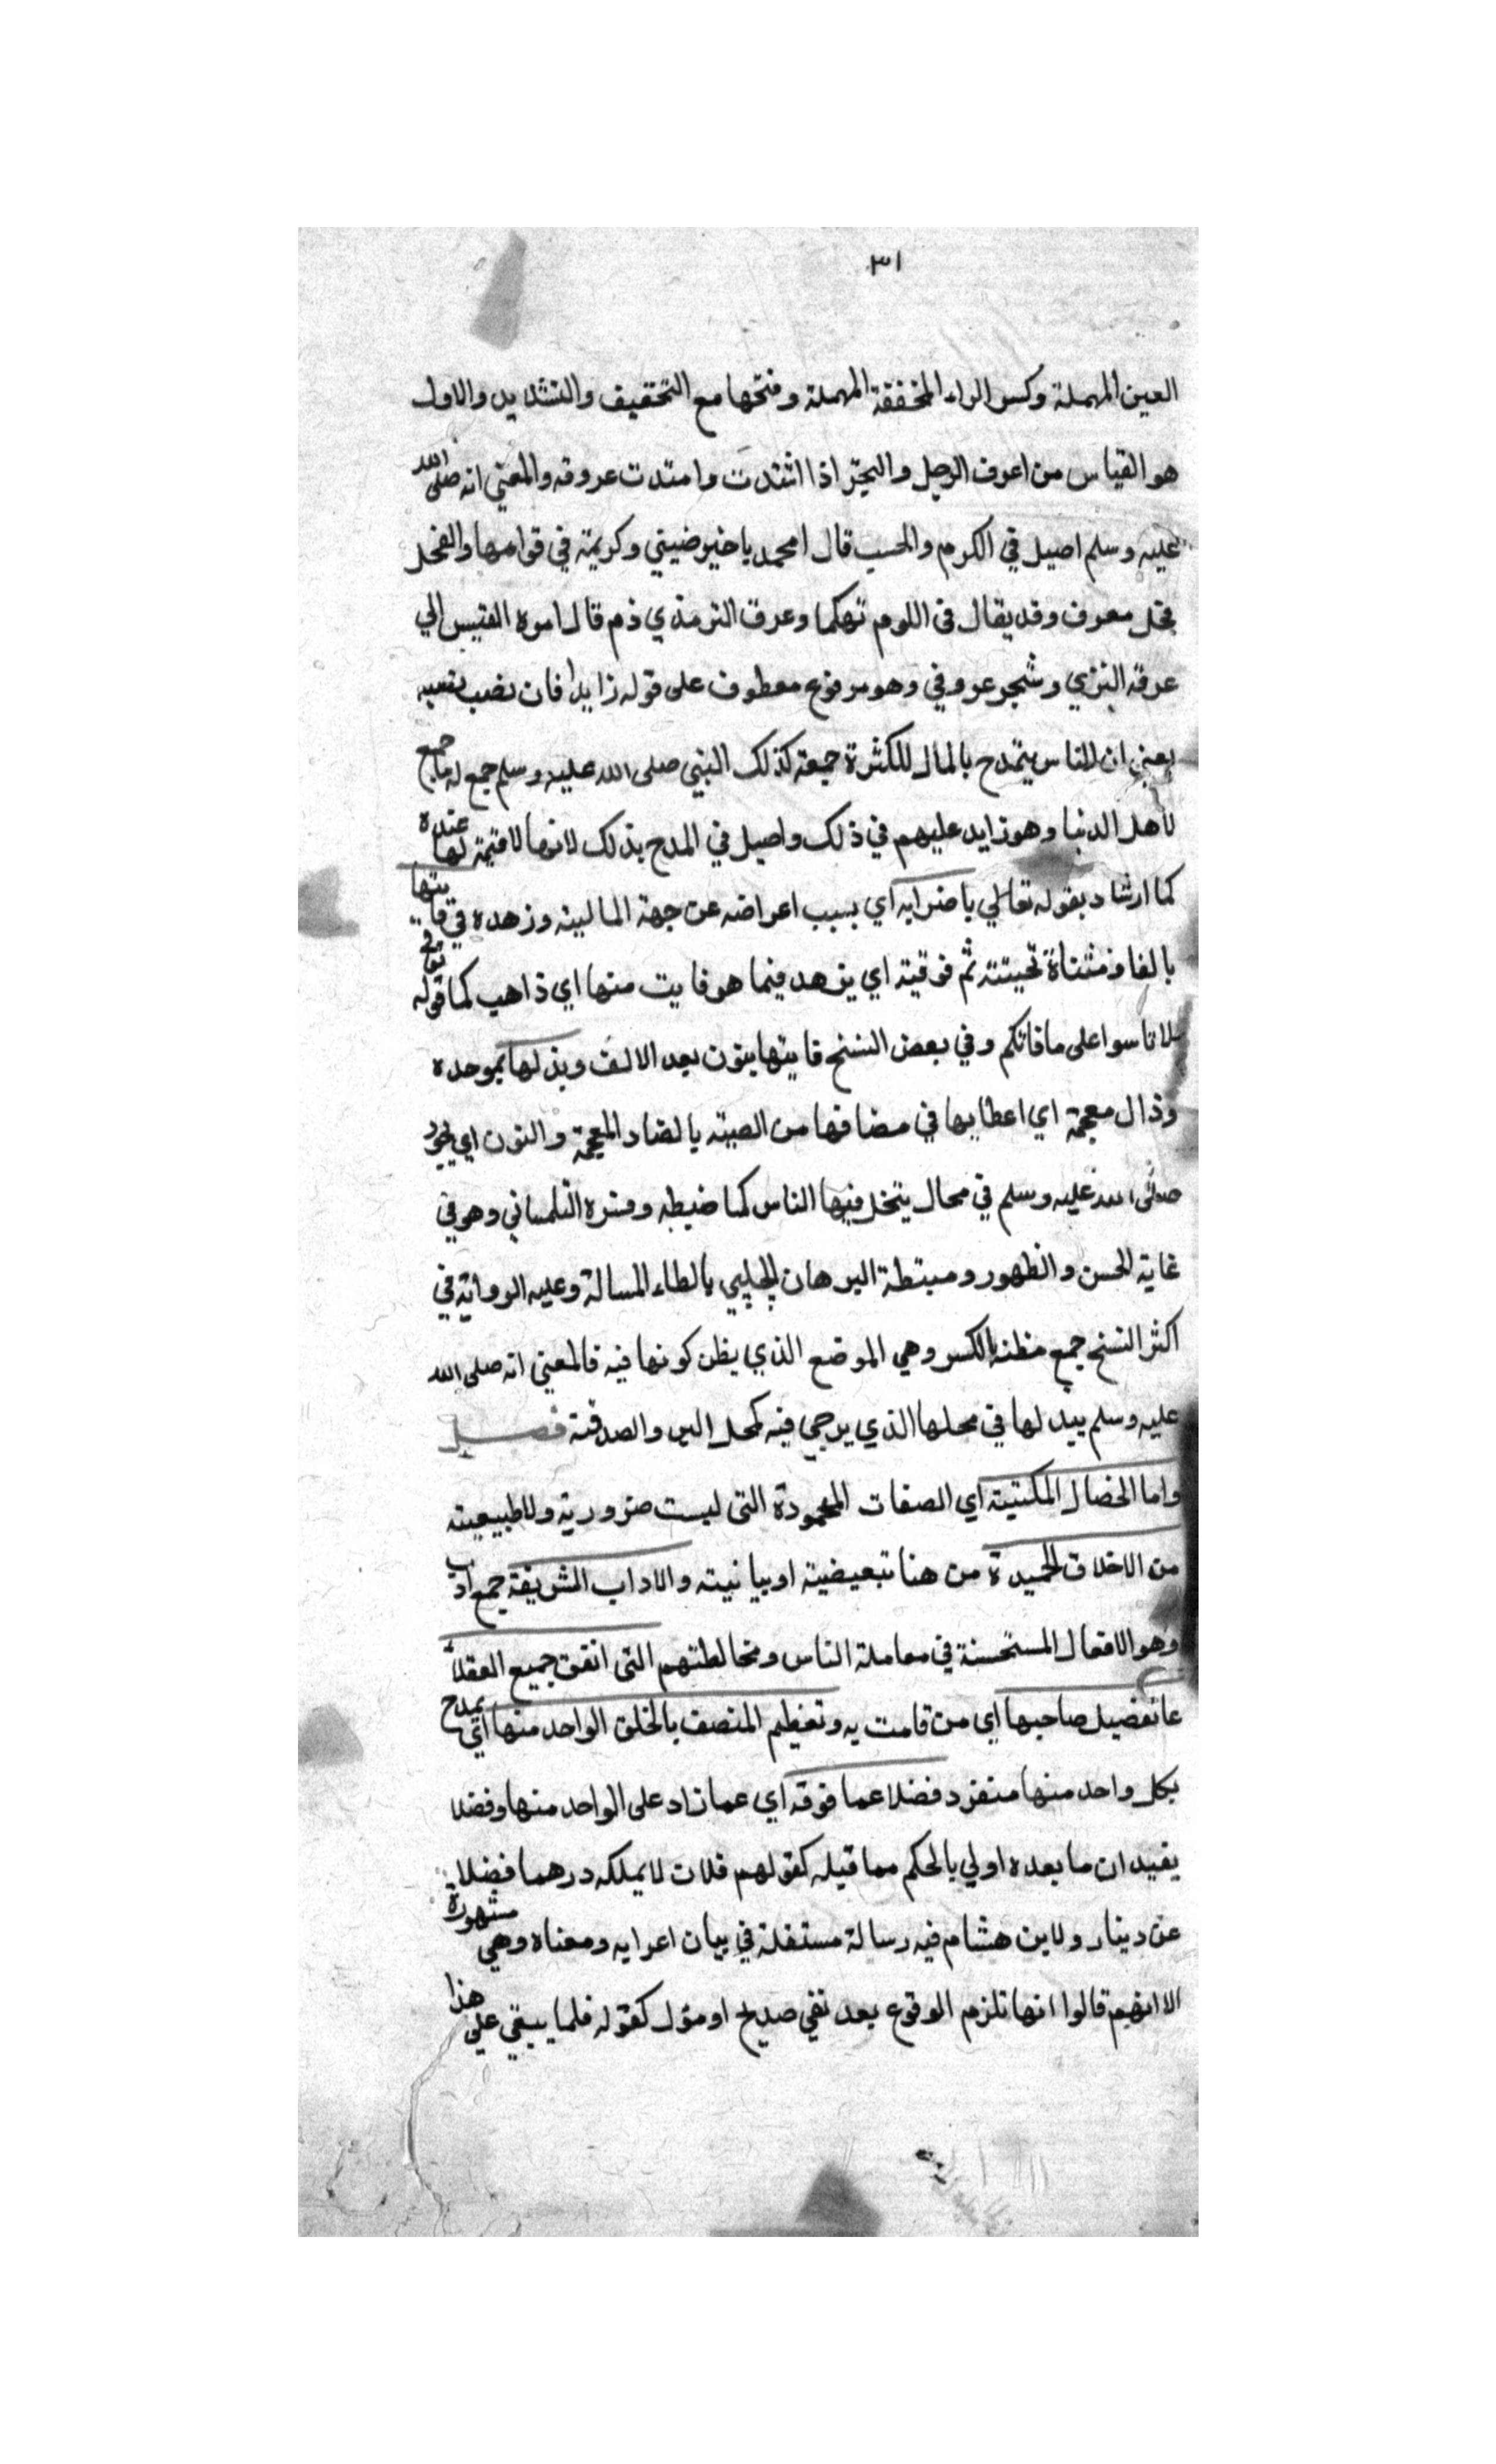 ٣١
العين المهملة وكسر الراء المخففة المهملة وفتحها مع التخفيف والتشديد والاول
هو القياس من اعرف الرجل والبحير اذا اشتدت وامتدت عروقه والمعني انه صلى الله
عليه وسلم اصيل في الكرم والحسب قال امحمد يا خير ضيني وكريمة في قوامها والفحل
فحل معرف وقد يقال في اللوم تهكما وعرق الترمذي ذم قال اموه القيس الي
عرقه الثري وشجو عروقي وهو مرفوع معطوف على قوله زايدا فان نصب بنسبه
يعني ان الناس يتمدح بالمال للكثرة جمعه كذلك النبي صلى الله عليه وسلم جمع له ما جمع
لاهل الدنيا وهو زايد عليهم في ذلك واصيل في المدح بذلك لانها لا قيمة لها عنده
كما ارشاد بقوله تعالي باضرابه اي بسبب اعراضه عن جهة المالية وزهده في فايتها
بالفا ومثناة تحيتته ثم فوقيته اي يزهد فيما هو فايت منها اي ذاهب كما قوله تعالى
لا تاسوا على ما فاتكم وفي بعض النسخ فايتها بنون بعد الالف وبذلها بموحده
وذال معجمة اي اعطايها في مضانها من الضنه بالضاد المعجمة والنون اي يجود
صلى الله عليه وسلم في محال يتخل فيها الناس كما ضبطه وفسره التلمساني وهو في
غاية الحسن والظهور وضبطه البرهان الحلبي بالطاء المسالة وعليه الرواية في
اكثر النسخ جمع مظنه بالكسر وهي الموضع الذي يظن كونها فيه فالمعني انه صلى الله
عليه وسلم يبذلها في محلها الذي يرجي فيه كمحل البر والصدقة فصل
واما الخصال المكتيبة اي الصفات المحمودة التى ليست ضرورية ولا طبيعيته
من الاخلاق الحميدة من هنا تبعيضية او بيانيته والاداب الشريفة جمع ادب
وهو الافعال المستحسنة في معاملة الناس ومخالطتهم التى اتفق جميع العقلاء
عا تفضيل صاحبها اي من قامت به وتعظيم المنصف بالخلق الواحد منها اي يمدح
بكل واحد منها منفرد فضلا عما فوقه اي عما زاد على الواحد منها وفضلا
يفيد ان ما بعده اولي بالحكم مما قبله كقولهم فلان لا يملكه درهما فضلا
عن دينار ولابن هشام فيه رسالة مستقلة في بيان اعرابه ومعناه وهي مشهورة
الا انهم قالوا انها تلزم الوقوع بعد نفي صريح او مؤل كقوله فلما يبقي على هذا